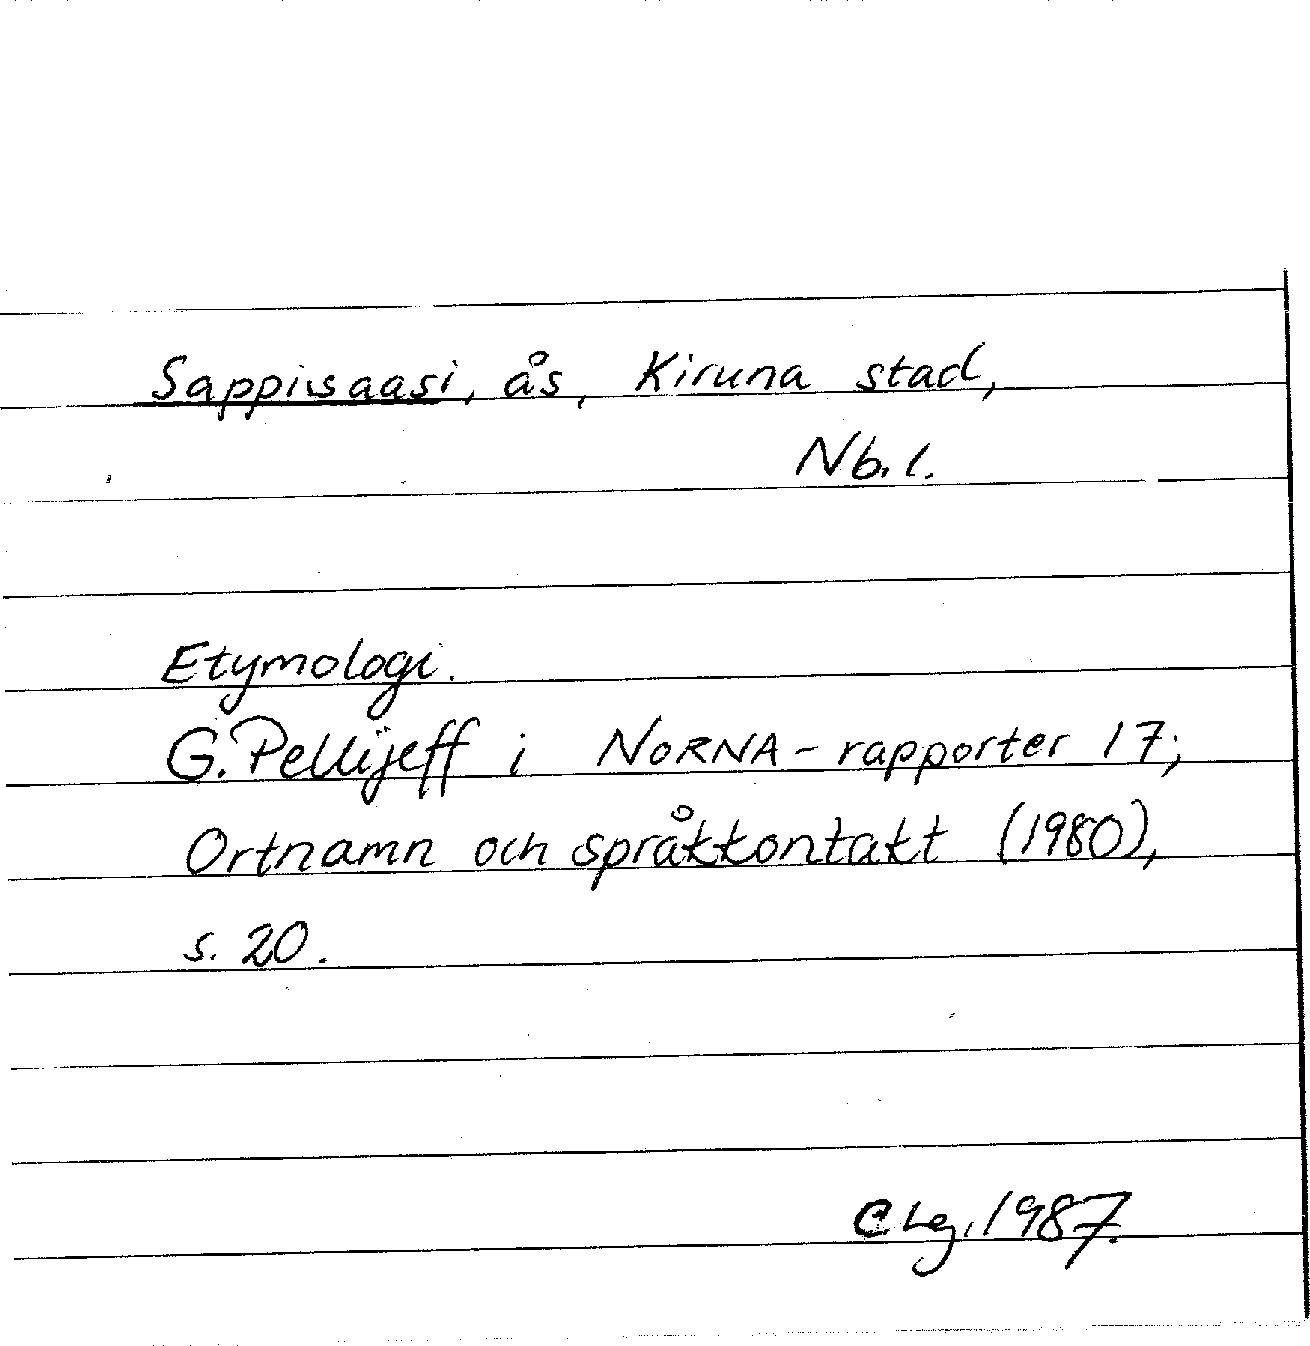 Sappisaasi, ås, Kiruna stad,
Nb.l.
Etymologi.
G. Pellijeff i NORNA-rapporter 17;
Ortnamn och språkkontakt (1980),
s. 20.
CLg. 1987.